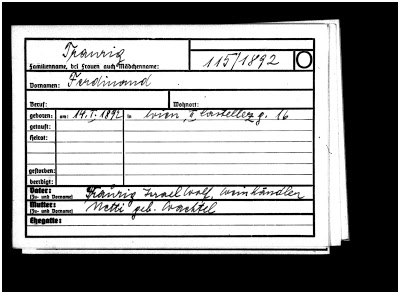 Traurig
Familienname, bei Frauen auch Mädchenname:
115/1892
Vornamen: Ferdinand
Beruf: Wohnort:
geboren: am: 14.I.1892 in Wien, II Castellezg. 16
getauft:
Heirat:
gestorben:
beerdigt:
Vater: Traurig Israel Wolf, Weinhändler
(Zu- und Vorname)
Mutter: Netti geb. Wachtel
(Zu- und Vorname)
Ehegatte: